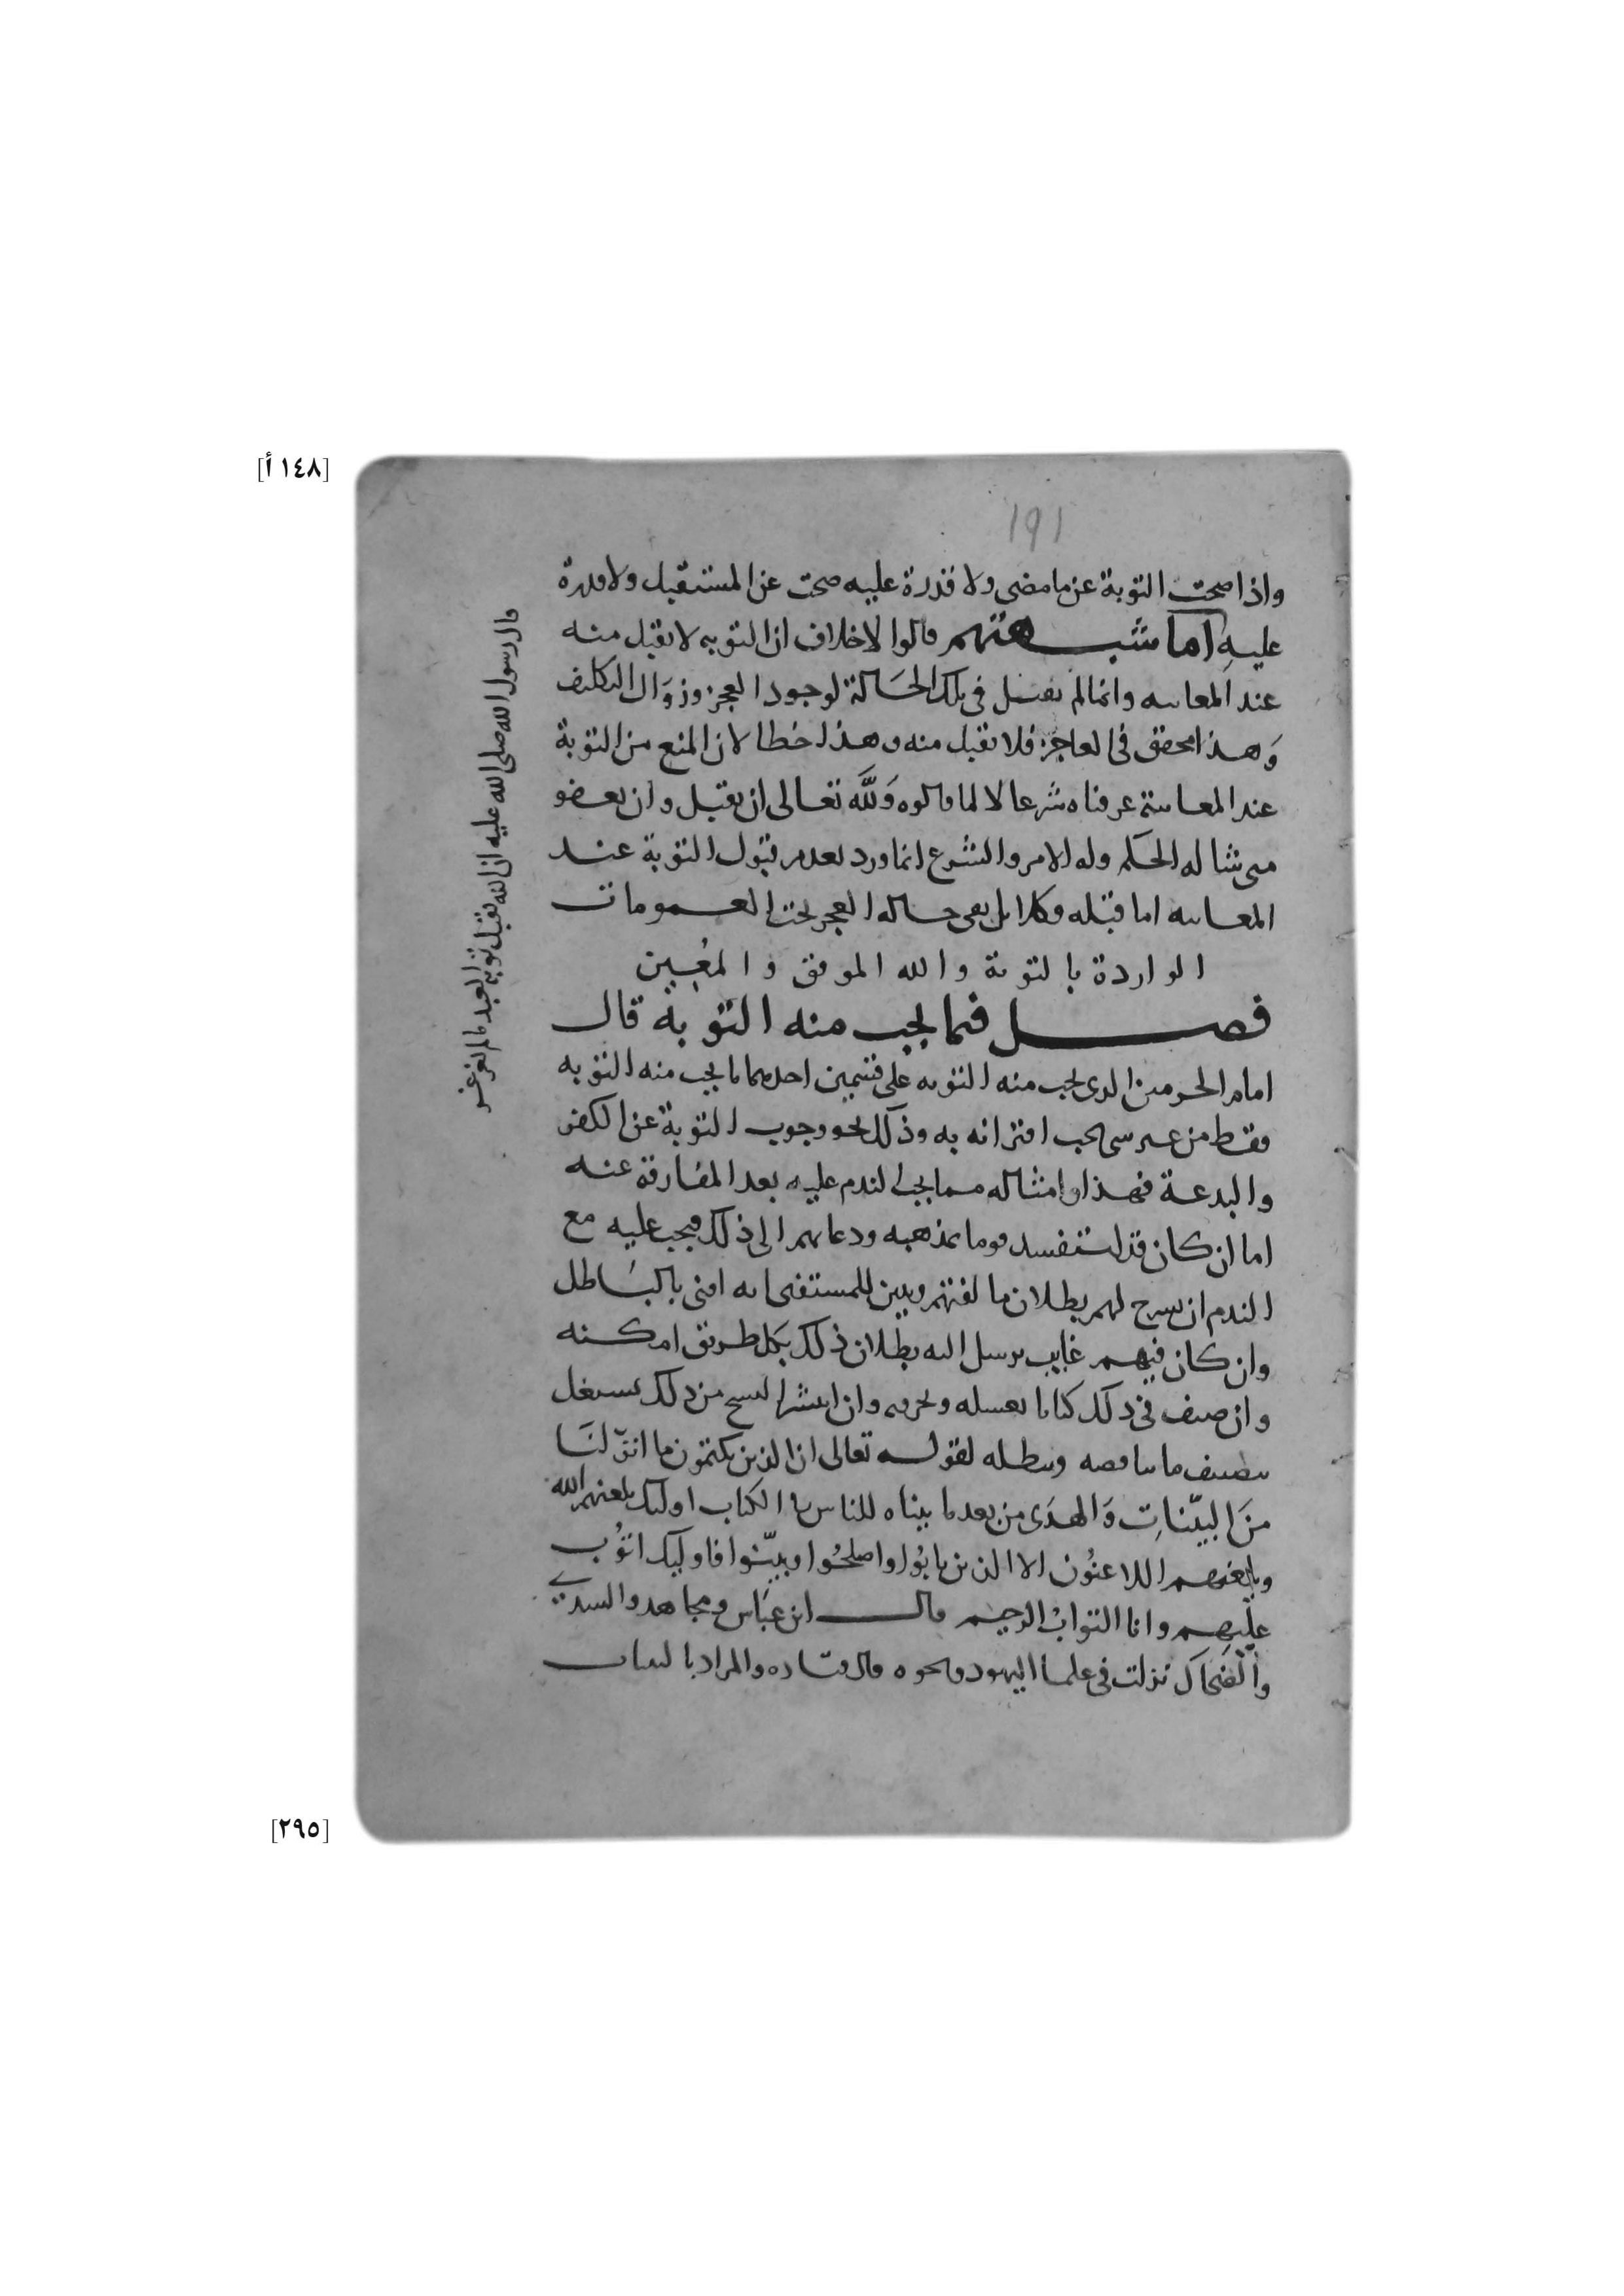 [١٤٨ أ]
١٩١
واذا صحت التوبة عن ما مضى ولا قدرة عليه صحت عن المستقبل ولا قدرة
عليه اما شبهتهم قالوا لا خلاف ان التوبه لا تقبل منه
عند المعاينه وانما لم تقبل في تلك الحالة لوجود العجز وزوال التكليف
وهذا محقق في العاجز فلا تقبل منه وهذا خطا لان المنع من التوبة
عند المعاينة عرفناه شرعا لا لما قالوه ولله تعالى ان يقبل وان يعفو
متى شا له الحكم وله الامر والشرع انما ورد بعدم قبول التوبة عند
المعاينه اما قبله فكلا بل بقي حاله العجز تحت العمومات
الواردة بالتوبة والله الموفق والمعين
فصل فيما يجب منه التوبة قال
امام الحرمين الذي يجب منه التوبه على قسمين احدهما ما يجب منه التوبه
فقط من غير شي يجب اقترانه به وذلك نحو وجوب التوبة عن الكفر
والبدعة فهذا وامثاله مما يجب الندم عليه بعد المفارقة عنه
اما ان كان قد استفسد قوما بمذهبه ودعاهم الى ذلك فيجب عليه مع
الندم ان يشرح لهم بطلان ما لقنهم ويبين للمستفتي انه افتى بالباطل
وان كان فيهم غايب يرسل اليه بطلان ذلك بكل طريق امكنه
وان صنف في ذلك كتابا يغسله ويحرقه وان انتشر النسخ من ذلك يشتغل
بتصنيف ما يناقضه ويبطله لقوله تعالى ان الذين يكتمون ما انزلنا
من البينات والهدى من بعد ما بيناه للناس في الكتاب اوليك يلعنهم الله
ويلعنهم اللاعنون الا الذين تابوا واصلحوا وبينوا فاوليك اتوب
عليهم وانا التواب الرحيم قال ابن عباس ومجاهد والسدي
والضحاك نزلت في علما اليهود ونحوه قال قتاده والمراد بالبينات
قال رسول الله صلى الله عليه ان الله يقبل توبة العبد ما لم يغرغر
[٢٩٥]